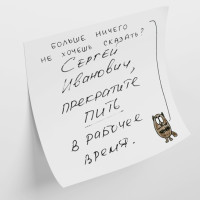 БОЛЬШЕ НИЧЕГО
НЕ ХОЧЕШЬ СКАЗАТЬ?
Сергей
Иванович,
прекратите
пить
в рабочее
время.